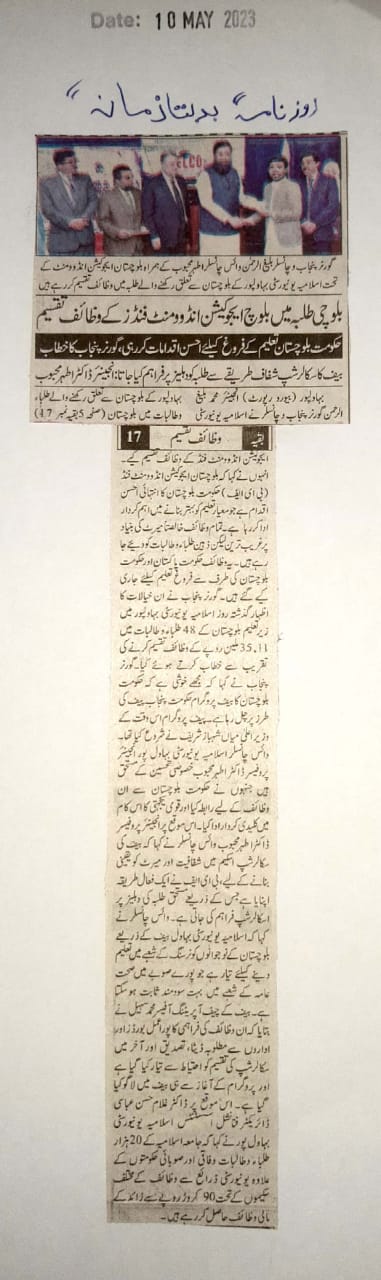 Date: 10 MAY 2023
روزنامہ "بدلتا زمانہ"
گورنر پنجاب و چانسلر بلیغ الرحمن وائس چانسلر اطہر محبوب کے ہمراہ بلوچستان ایجوکیشن انڈوومنٹ کے
تحت اسلامیہ یونیورسٹی بہاولپور کے بلوچستان سے تعلق رکھنے والے طلبہ میں وظائف تقسیم کر رہے ہیں
بلوچی طلبہ میں بلوچ ایجوکیشن انڈوومنٹ فنڈز کے وظائف تقسیم
حکومت بلوچستان تعلیم کے فروغ کیلئے احسن اقدامات کر رہی، گورنر پنجاب کا خطاب
بیف کا سکالرشپ شفاف طریقے سے طلبہ کو دہلیز پر فراہم کیا جاتا: انجینئر ڈاکٹر اطہر محبوب
بہاولپور (بیورو رپورٹ) انجینئر محمد بلیغ
الرحمن گورنر پنجاب و چانسلر نے اسلامیہ یونیورسٹی
بہاولپور کے بلوچستان سے تعلق رکھنے والے طلباء
وطالبات میں بلوچستان (صفحہ 5 بقیہ نمبر 17)
بقیہ وظائف تقسیم 17
ایجوکیشن انڈوومنٹ فنڈ کے وظائف تقسیم کیے۔
انہوں نے کہا کہ بلوچستان ایجوکیشن انڈوومنٹ فنڈ
(بی ای ایف) حکومت بلوچستان کا انتہائی احسن
اقدام ہے جو معیار تعلیم کو بہتر بنانے میں اہم کردار
ادا کر رہا ہے۔ تمام وظائف خالصتاً میرٹ کی بنیاد
پر غریب ترین لیکن ذہین طلباء وطالبات کو دیئے جا
رہے ہیں۔ یہ وظائف حکومت پاکستان اور حکومت
بلوچستان کی طرف سے فروغ تعلیم کیلئے جاری
کیے گئے ہیں۔ گورنر پنجاب نے ان خیالات کا
اظہار گذشتہ روز اسلامیہ یونیورسٹی بہاولپور میں
زیر تعلیم بلوچستان کے 48 طلباء وطالبات میں
35.11 ملین روپے کے وظائف تقسیم کرنے کی
تقریب سے خطاب کرتے ہوئے کیا۔ گورنر
پنجاب نے کہا کہ مجھے خوشی ہے کہ حکومت
بلوچستان کا بیف پروگرام حکومت پنجاب پیف کی
طرز پر چل رہا ہے۔ پیف پروگرام اس وقت کے
وزیر اعلیٰ میاں شہباز شریف نے شروع کیا تھا۔
وائس چانسلر اسلامیہ یونیورسٹی بہاول پور انجینئر
پروفیسر ڈاکٹر اطہر محبوب خصوصی تحسین کے مستحق
ہیں جنہوں نے حکومت بلوچستان سے ان
وظائف کے لیے رابطہ کیا اور قومی یکجہتی کا اس کام
میں کلیدی کردار ادا کیا۔ اس موقع پر انجینئر پروفیسر
ڈاکٹر اطہر محبوب وائس چانسلر نے کہا کہ بیف کی
سکالرشپ اسکیم میں شفافیت اور میرٹ کو یقینی
بنانے کے لیے، بی ای ایف نے ایک فعال طریقہ
اپنایا ہے جس کے ذریعے مستحق طلبہ کی دہلیز پر
اسکالرشپ فراہم کی جاتی ہے۔ وائس چانسلر نے
کہا کہ اسلامیہ یونیورسٹی بہاول بیف کے ذریعے
بلوچستان کے نوجوانوں کو نرسنگ کے شعبے میں تعلیم
دینے کیلئے تیار ہے جو پورے صوبے میں صحت
عامہ کے شعبے میں بہت سودمند ثابت ہو سکتا
ہے۔ بیف کے چیف آپریٹنگ آفیسر محمد سہیل نے
بتایا کہ ان وظائف کی فراہمی کا پورا عمل بورڈز اور
اداروں سے مطلوبہ ڈیٹا، تصدیق اور آخر میں
سکالرشپ کی تقسیم کو احتیاط سے تیار کیا گیا ہے
اور پروگرام کے آغاز سے ہی بیف میں لاگو کیا
گیا ہے۔ اس موقع پر ڈاکٹر غلام حسن عباسی
ڈائریکٹر فنانشل اسسٹنس اسلامیہ یونیورسٹی
بہاول پور نے کہا کہ جامعہ اسلامیہ کے 20 ہزار
طلباء وطالبات وفاقی اور صوبائی حکومتوں کے
علاوہ یونیورسٹی ذرائع سے وظائف کے مختلف
سکیموں کے تحت 90 کروڑ روپے سے زائد کے
مالی وظائف حاصل کر رہے ہیں۔